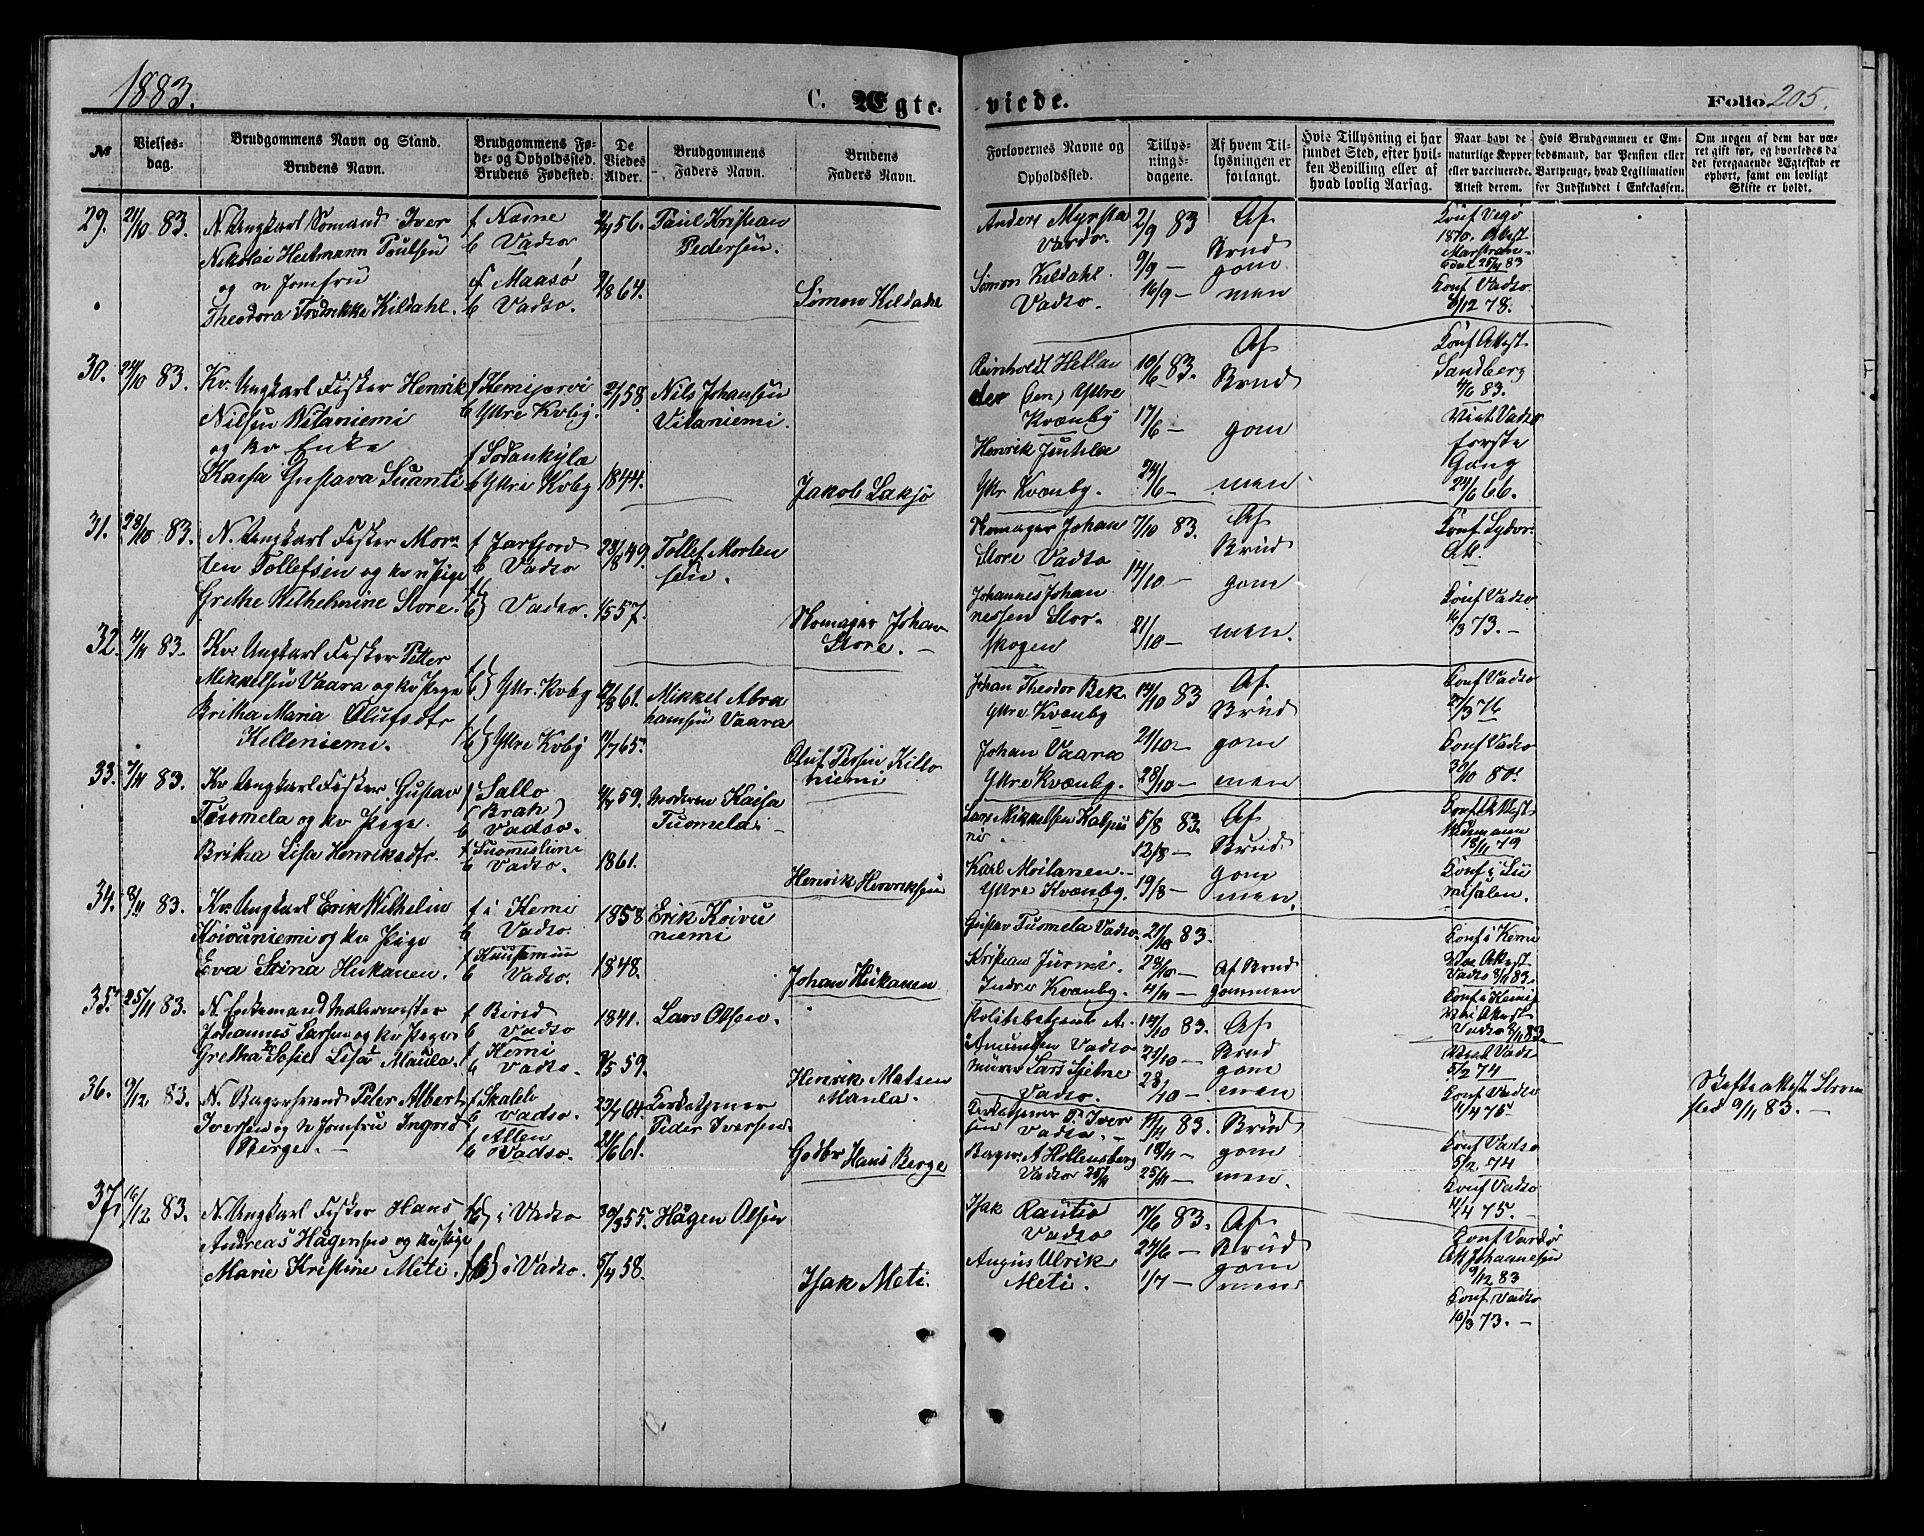 1883.
C. Ægte-
viede.
Folio 205.
№
Vielses-
dag.
Brudgommens Navn og Stand.
Brudens Navn.
Brudgommens Fø-
de- og Opholdssted.
Brudens Fødested.
De
Viedes
Alder.
Brudgommens
Faders Navn.
Brudens
Faders Navn.
Forlovernes Navne og
Opholdssted.
Tillys-
nings-
dagene.
Af hvem Til-
lysningen er
forlangt.
Hvis Tillysning ei har
fundet Sted, efter hvil-
ken Bevilling eller af
hvad lovlig Aarsag.
Naar havt de
naturlige Kopper
eller vaccinerede.
Attest derom.
Hvis Brudgommen er Em-
bedsmand, har Pension eller
Vartpenge, hvad Legitimation
for Indskuddet i Enkekassen.
Om nogen af dem har væ-
ret gift før, og hvorledes da
det foregaaende Ægteskab er
ophørt, samt om lovligt
Skifte er holdt.
29. 21/10 83. N. Ungkarl Sømand Iver
Nikolai Heitmann Poulsen
og n Jomfru
Theodora Fredrikke Kildahl.
f Næsne
b Vadsø
f Maasø
b Vadsø.
56.
8 64.
Paul Kristian
Pedersen.
Simon Kildahl
Anders Myrsta
Vardø.
Simon Kildahl.
Vadsø.
2/9 83
9/9 —
16/9 —
Af
Brud
gom
men
Conf Vegø
1870. Attest
Conf Vadsø
8/12 78.
30. 24/10 83. Kv. Ungkarl Fisker Henrik
Nilsen Witaniemi
og kv Enke
Kaisa Gustava Suanti
f Kemijærvi
b Yttre Kvbg.
f Sodankylæ
b Yttre Kvbg
2/1 58.
1844.
Nils Johansen
Vitaniemi.
Jakob Laksjo
Reinholdt Hellan
der (sen) Yttre
Kvænby
Henrik Juntila
Yttr Kvænby.
10/6 83.
17/6 —
24/6 —
Af
Brud
gom
men
Conf Attest
Sandberg
4/6 83.
Viet Vadsø
første
Gang
24/6 66.
31. 28/10 83. N. Ungkarl Fisker Mor-
ten Tollefsen og kv n Pige
Grethe Wilhelmine Store.
f Jarfjord
b Vadsø
f
b } Vadsø.
28/8 49.
57.
Tollef Morten
sen.
Skomager Johan
Store. —
Skomager Johan
Store Vadsø
Johannes Johan
nessen Stor-
skogen
7/10 83.
14/10 —
21/10 —
Af
Brud
gom
men.
Conf Sydvar.
Att.
Conf Vadsø
3 73. —
32. 4/11 83. Kv. Ungkarl Fisker Petter
Mikkelsen Vaara og kv Pige
Britha Maria Olufsdtr
Killeniemi.
f
b } Yttr. Kvbg
f
b } Yttre Kvbg
8 61.
7 65.
Mikkel Abra
hamsen Vaara
Oluf Persen Kille
niemi
Johan Theodor Bek
Yttre Kvænby
Johan Vaara
Yttre Kvænby.
14/10 83
21/10 —
28/10 —
Af
Brud
gom
men
Conf Vadsø
27/3 76
Conf Vadsø
30/10 80.
33. 7/11 83. Kv Ungkarl Fisker Gustav
Tuomela og kv Pige.
Britha Lisa Henriksdtr.
f Sallo
(Brah)
b Vadsø.
f Suomislimi
b Vadsø.
59.
1861.
Moderen Kaisa
Tuomela.
Henrik Henriksen
Lars Mikkelsen
Karl Moilanen.
Yttre Kvænby.
5/8 83.
12/8 —
19/8 —
Af
Brud
gom
men.
Conf Attest
18/11 79
Conf i Su
msalen.
34. 8/11 83. Kv. Ungkarl Erik Wilhelm
Koivuniemi og kv Pige
Eva Stina Hukanen.
f i Kemi
b Vadsø.
f Kuusamun
b Vadsø.
1858
1848.
Erik Koivu
niemi
Johan Hukanen
Gustav Tuomela Vadsø.
Kristian
Indre Kvænby.
21/10 83.
28/10 —
4/11 —
Af Brud
gommen
Conf i Kemi
Attest
Vadsø 8/11 83.
Conf i Kemi
Attest
Vadsø 8/11 83.
35. 25/11 83. N. Enkemand Malermester
Johannes Larsen og kv Pige
Gretha Sofie Lisa Maula.
f Birid
b Vadsø
f Kemi
b Vadsø.
1841.
5 59.
Lars Olsen.
Henrik Matsen
Maula.
Politibetjent A.
Amundsen Vadsø
Murer Lars Sjetne
Vadsø.
14/10 83.
21/10 —
28/10 —
Af
Brud
gom
men
Viet Vadsø
5/2 74
Conf Vadsø
4 75.
Skifteattest Strøm
sted 9/11 83. —
36. 9/12 83. N. Bagersvend Peter Albert
Iversen og n Jomfru Ingred
Berge. —
f Skalelv
b Vadsø.
f Alten
b Vadsø.
64.
6 61.
Kirketjener
Peder Iversen
Godbr Hans Berge
Kirketjener P. Iver
sen Vadsø. —
Bager A Hollensberg
Vadsø
11/11 83.
18/11 —
25/11 —
Brud
gom
men.
Conf Vadsø
5/2 74
Conf Vadsø
4 75. —
37. 16/12 83. N. Ungkarl Fisker Hans
Andreas Hågensen og kv Pige
Marie Kristine Meti.
f b } i Vadsø
f b } i Vadsø.
30/3 55.
4 58.
Hågen Olsen
Isak Meti.
Isak Rautio
Vadsø
August Ulrik
Meti.
6 83.
24/6 —
1/7 —
Af
Brud
gom
men
Conf Vardø
Att Johannesen
9/12 83
Conf Vadsø
16/3 73. —